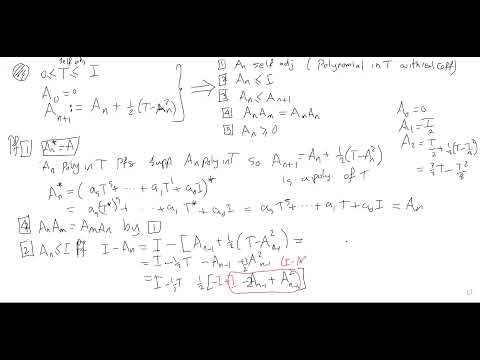 self adj
0 ≤ T ≤ I
A₀ = 0
Aₙ₊₁ := Aₙ + ½(T-Aₙ²)
⇒
1 Aₙ self adj (Polynomial in T with real coeff)
2 Aₙ ≤ I
3 Aₙ ≤ Aₙ₊₁
4 AₙAₘ = AₘAₙ
5 Aₙ ≥ 0
A₀ = 0
A₁ = T/2
A₂ = T/2 + ½(T-T²/4)
= ¾T - T²/8
Pf 1 Aₙ* = A
Aₙ poly in T Pf: supp Aₙ poly in T so Aₙ₊₁ = Aₙ + ½(T-Aₙ²)
is a poly. of T
Aₙ* = (aₛTˢ + ⋯ + a₁T¹ + a₀I)*
= aₛ(T*)ˢ + ⋯ + a₁T* + a₀I = aₛTˢ + ⋯ + a₁T + a₀I = Aₙ
4 AₙAₘ = AₘAₙ by 1
2 Aₙ ≤ I Pf I - Aₙ = I - [Aₙ₋₁ + ½(T-Aₙ₋₁²) =
= I - ½T - Aₙ₋₁ + ½Aₙ₋₁² (I-
= I - ½T ½[-I + I - 2Aₙ₋₁ + Aₙ₋₁²]